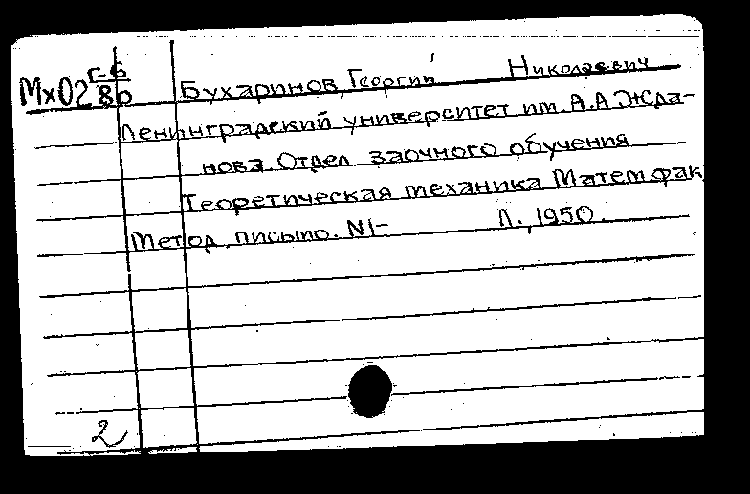 Г-6
Мх02 80 Бухаринов, Георгий Николаевич
Ленинградский университет им. А.А Жда-
нова. Отдел заочного обучения
Теоретическая механика Матем. фак
Метод. письмо. N1- Л., 1950.
2